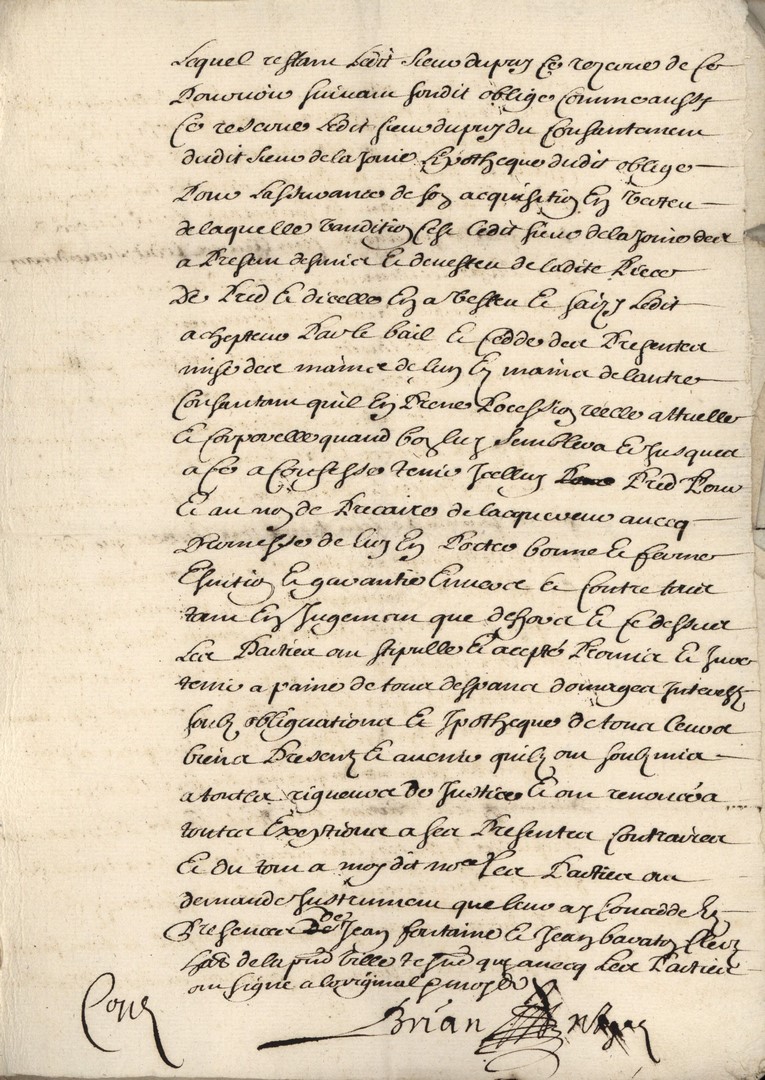 Lequel restam Ledit sieur dupuy Ce rezerve de Ce
Pourvoir suivam sondit oblige Comme aussy
Ce reserve Ledit sieur dupuy du Consantemem
dudit sieur de la Jonie Lipotheque dudit oblige
Pour Lassurance de son acquisition En Verteu
de laquelle Vandition Cest Ledit sieur de la Jonie des
a Presan desmis Et devesteu de ladite Piece
De Pred Et dicelle En a Vesteu Et saizy Ledit
achepteur Par le bail Et Cedde des Presentes
mise des mains de lun En mains de lautre
Consantam quil En Prene Pocession reelle actuelle
Et Corporelle quand bon luy semblera Et Jusques
a Ce a Confesse tenir Jcelluy Pred Pour
Et au nom de Precaire de lacquereur avecq
Promesse de luy En Porter bonne Et ferme
Esvition Et garantie Envers Et Contre tous
tam En Jugemem que dehors Et Ce dessus
Les Parties om stipulle Et accepté Promis Et Jure
tenir a paine de tous despans domages Interests
soubz obliguations Et Ipotheque de tous Leurs
biens Presentz Et avenir quilz om soubzmis
a toutes rigueurs De Justice Et om renoncé a
toutes Exeptions a ses Presentes Contraires
Et du tout a moy dit nore Les Parties om
demande Jnstrumem que leur ay Concedde En
Presences De Jean fontaine Et Jean Clerz
habs de la pnt Ville avecq Les Parties
om signe a loriginal
Brian